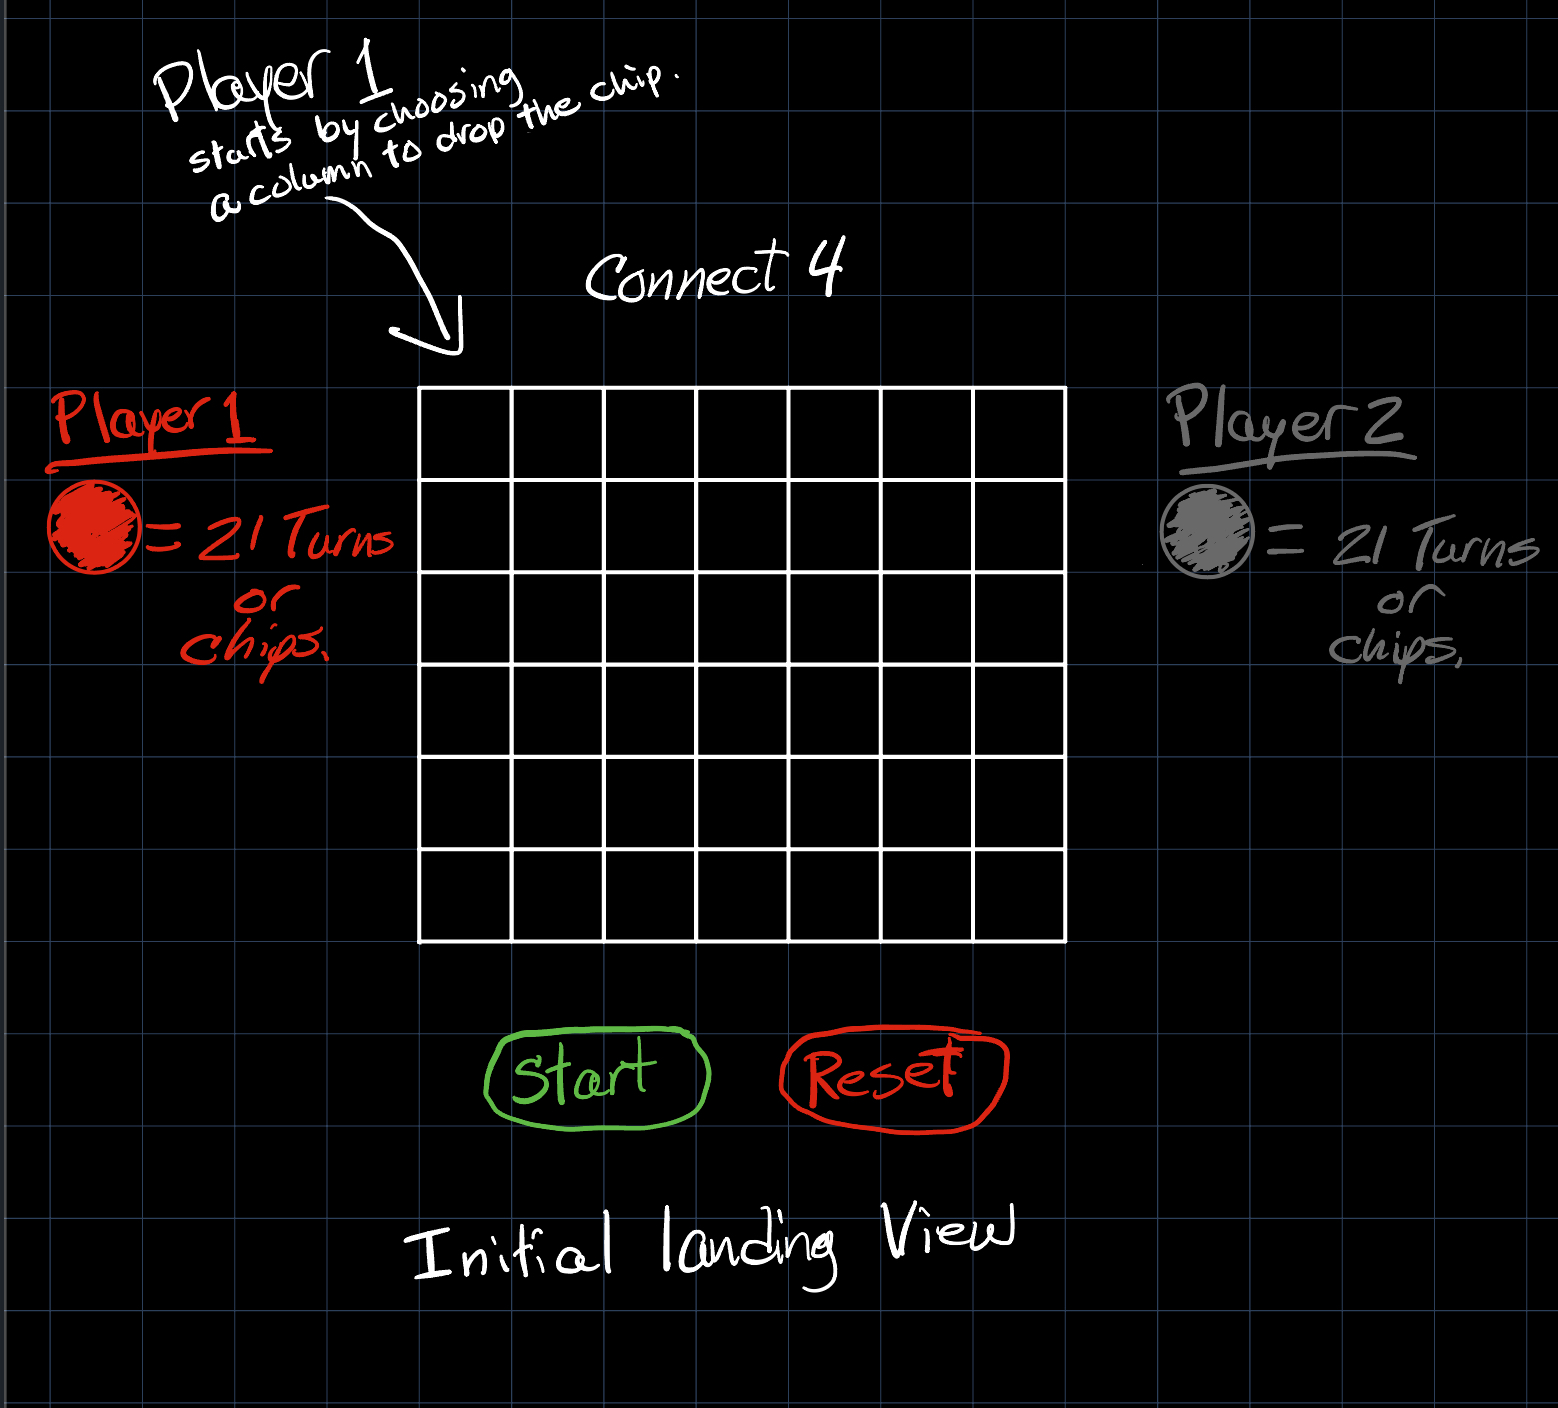 Player 1
starts by choosing
a column to drop the chip.
Connect 4
Player 1
= 21 Turns
or
chips.
Player 2
= 21 Turns
or
chips.
Start
Reset
Initial landing View